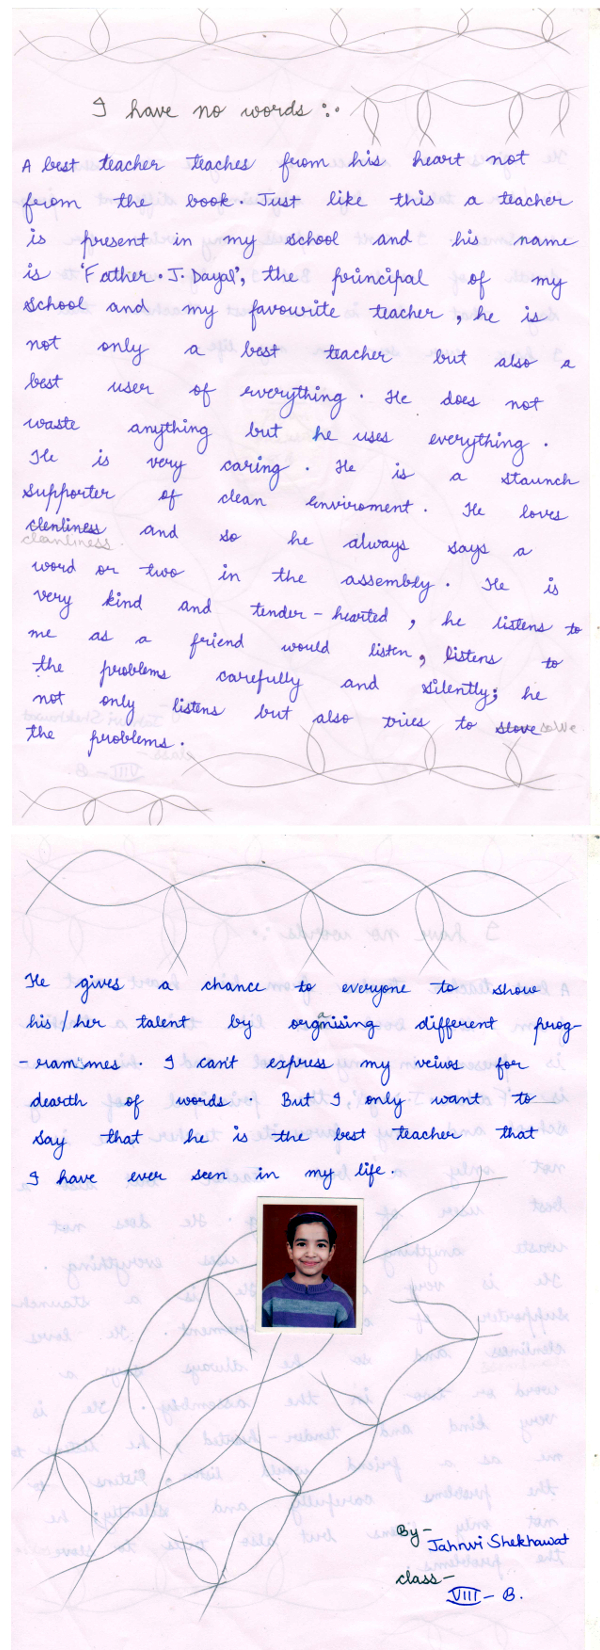 I have no words :·
A best teacher teaches from his heart not
from the book. Just like this a teacher
is present in my school and his name
is 'Father. J. Dayal', the principal of my
school and my favourite teacher, he is
not only a best teacher but also a
best user of everything. He does not
waste anything but he uses everything.
He is very caring. He is a staunch
supporter of clean enviroment. He loves
clenliness and so he always says a
cleanliness.
word or two in the assembly. He is
very kind and tender-hearted, he listens to
me as a friend would listen, listens to
the problems carefully and silently; he
not only listens but also tries to slove solve
the problems.
He gives a chance to everyone to show
his/her talent by organising different prog-
-rammes. I can't express my veiws for
dearth of words. But I only want to
say that he is the best teacher that
I have ever seen in my life.
By- Jahnvi Shekhawat
class- VIII - B.